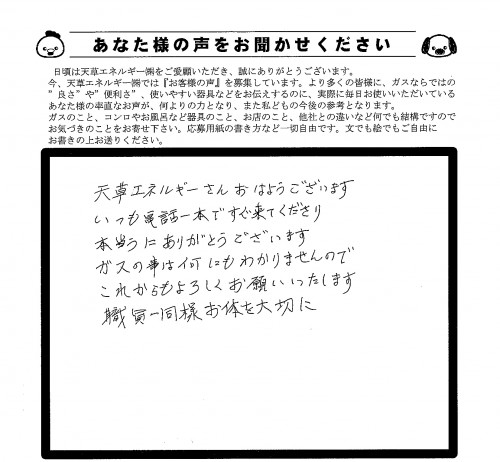 あなた様の声をお聞かせください
日頃は天草エネルギー㈱をご愛顧いただき、誠にありがとうございます。
今、天草エネルギー㈱では『お客様の声』を募集しています。より多くの皆様に、ガスならではの
”良さ”や”便利さ”、使いやすい器具などをお伝えするのに、実際に毎日お使いいただいている
あなた様の率直なお声が、何よりの力となり、また私どもの今後の参考となります。
ガスのこと、コンロやお風呂など器具のこと、お店のこと、他社との違いなど何でも結構ですので
お気づきのことをお寄せ下さい。応募用紙の書き方など一切自由です。文でも絵でもご自由に
お書きの上お送りください。
天草エネルギーさんおはようございます
いつも電話一本ですぐ来てくださり
本当うにありがとうございます
ガスの事は何にもわかりませんので
これからもよろしくお願いいたします
職員一同様お体を大切に